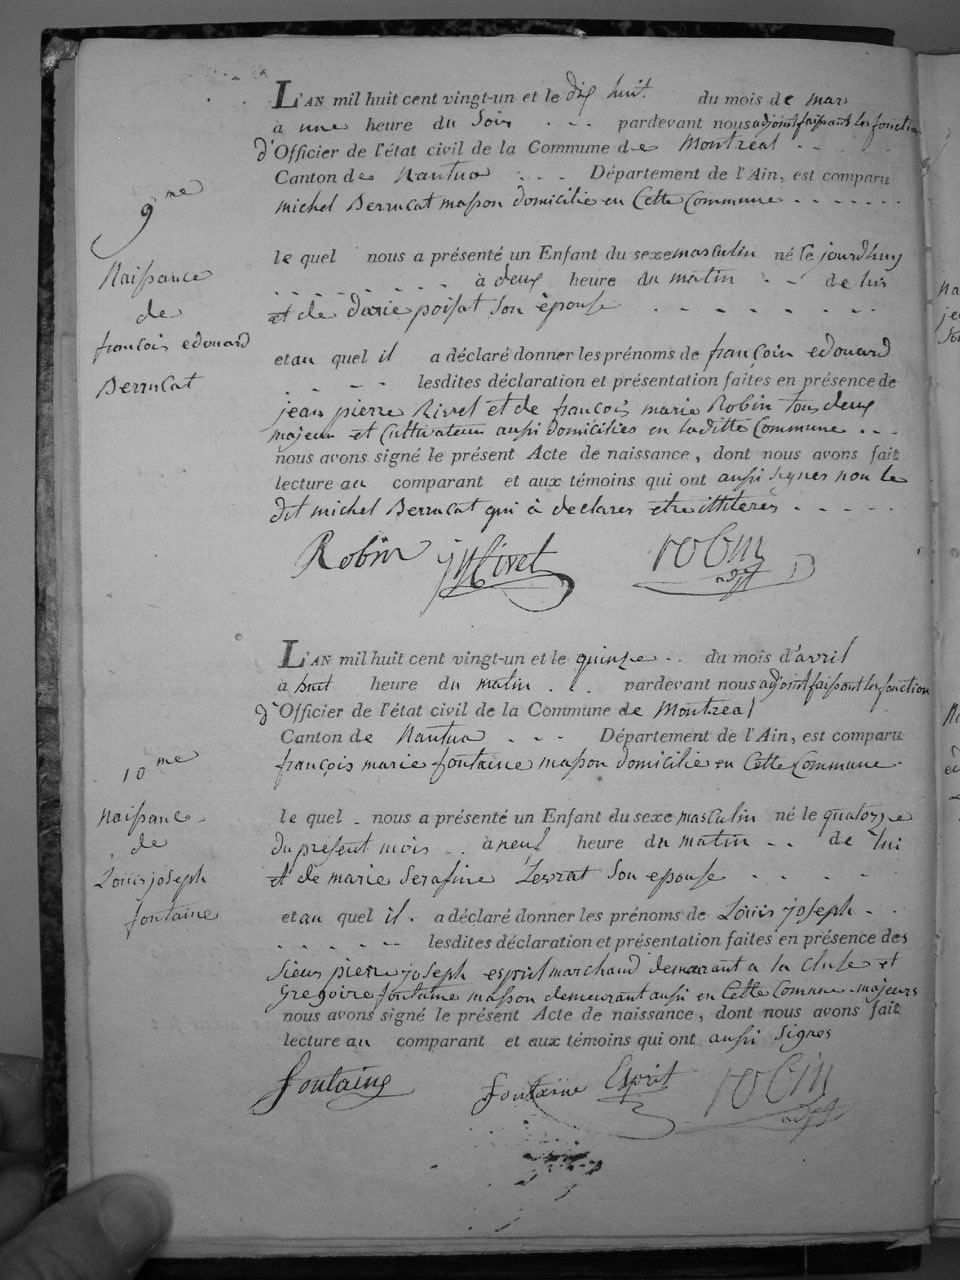 L'AN mil huit cent vingt-un et le dix huit du mois de mars
à une heure du Soir pardevant nous adjoint faissant les fonction
d'Officier de l'état civil de la Commune de Montréal
Canton de Nantua Département de l'Ain, est comparu
michel Berrucat masson domicilié en Cette Commune
9me
Naissance
de
françois edouard
Berrucat
le quel nous a présenté un Enfant du sexe masculin né le jourdhuy
à deux heure du matin de lui
et de Darie poisat son épouse
et au quel il a déclaré donner les prénoms de françois edouard
lesdites déclaration et présentation faites en présence de
jean pierre Rivet et de francois marie Robin tous deux
majeur et Cultivateur aussi domiciliés en laditte Commune
nous avons signé le présent Acte de naissance, dont nous avons fait
lecture au comparant et aux témoins qui ont aussi signes non le
dit michel Berrucat qui à declares etre illiterés
Robin jp Rivet robin
adjt
L'AN mil huit cent vingt-un et le quinze du mois d'avril
à huit heure du matin pardevant nous adjoint faissant les fonction
d'Officier de l'état civil de la Commune de Montreal
Canton de Nantua Département de l'Ain, est comparu
françois marie fontaine masson domicilié en Cette Commune
10me
Naissance
de
Louis joseph
fontaine
le quel nous a présenté un Enfant du sexe masculin né le quatorze
du présent mois à neuf heure du matin de lui
et de marie Serafine Levrat son epouse
et au quel il a déclaré donner les prénoms de Louis joseph
lesdites déclaration et présentation faites en présence des
sieur pierre joseph esprit marchand demeurant a la Cluse et
Gregoire fontaine masson demeurant aussi en Cette Comune majeurs
nous avons signé le présent Acte de naissance, dont nous avons fait
lecture au comparant et aux témoins qui ont aussi signes
fontaine fontaine Esprit robin
adjt